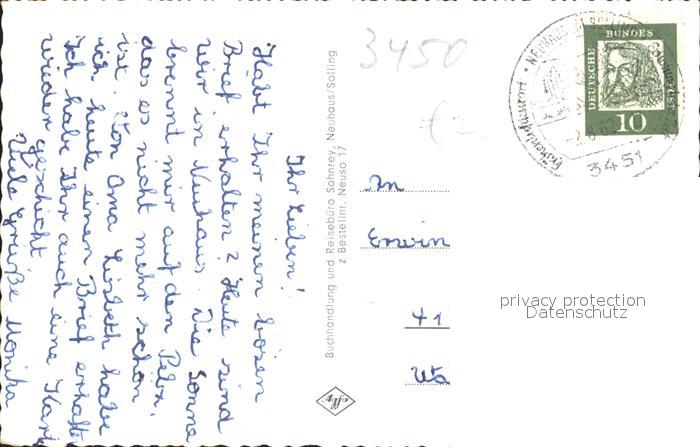 Ihr Lieben!
Habt Ihr meinen bösen
Brief erhalten? Heute sind
wir in Neuhaus. Die Sonne
brennt mir auf den Pelz,
das es nicht mehr schön
ist. Von Oma Lisbeth habe
ich heute einen Brief erhalten
Ich habe Ihr auch eine Karte
wieder geschickt.
Viele Grüße Monika
Buchhandlung und Reisebüro Sohnrey, Neuhaus/Solling
z Bestellnr. Neuso 17
agfa
3450
DEUTSCHE BUNDES
10
NEUHAUS IM SOLLING
Höhenluftkurort
3451
An
Erwin
41
privacy protection
Datenschutz